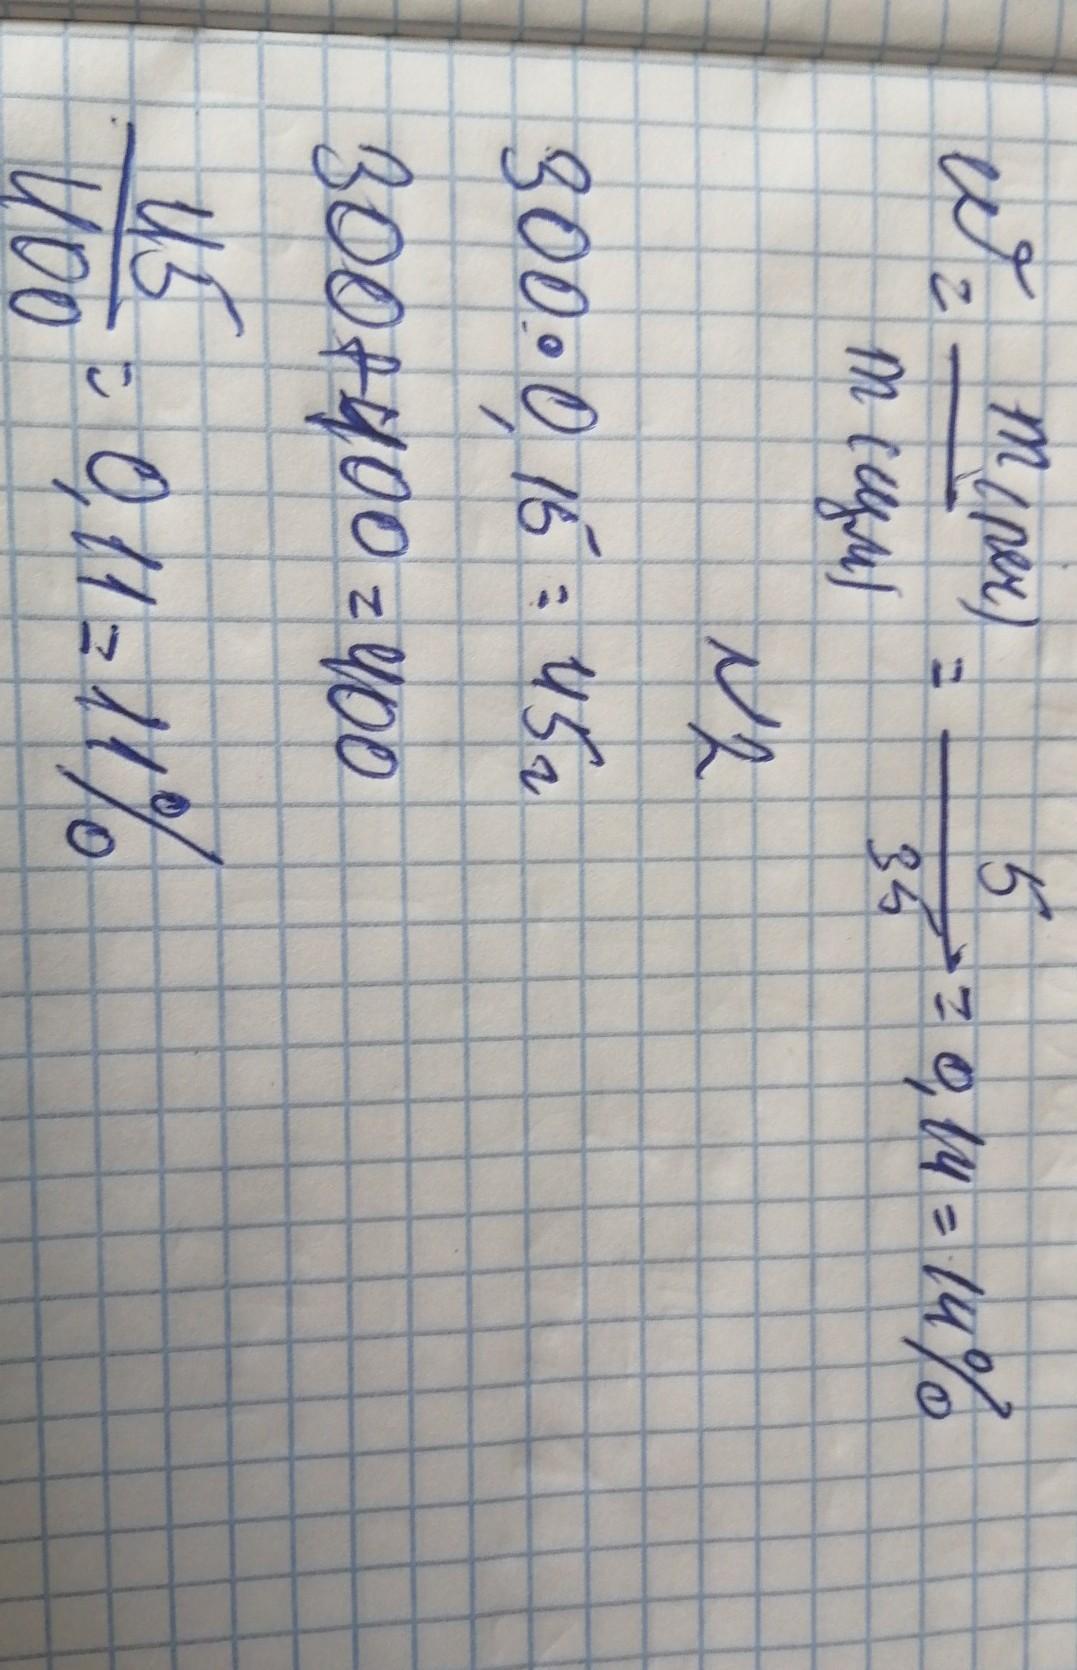 w = m(реч) / m(суми) = 5 / 35 = 0,14 = 14%
N2
300 · 0,15 = 45г
300 + 100 = 400
45 / 400 = 0,11 = 11%